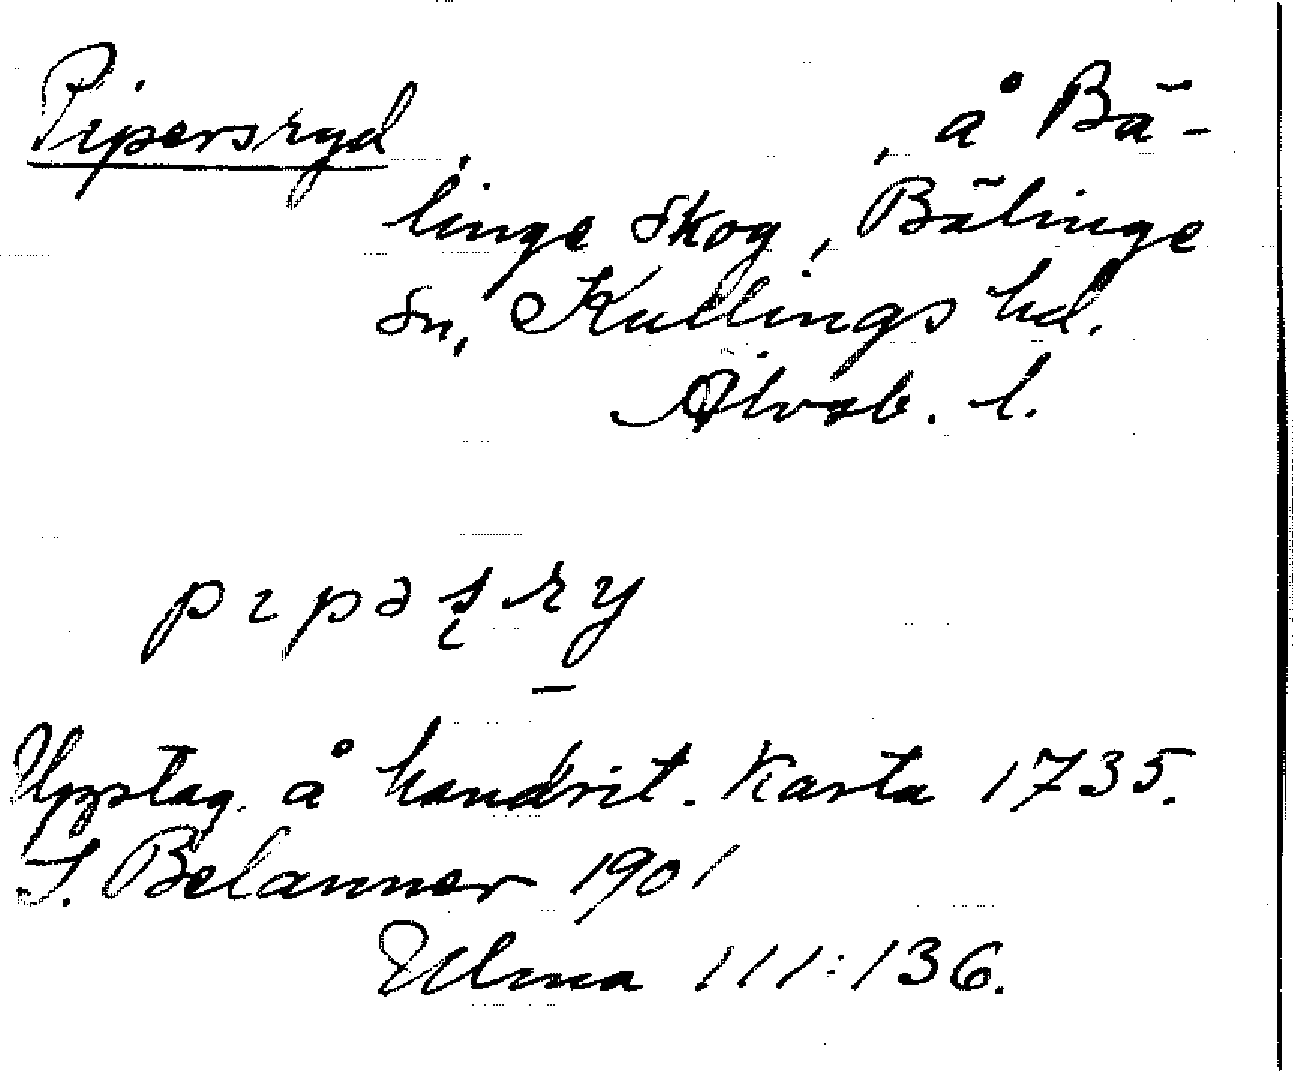 Pipersryd, å Bä-
linge skog, Bälinge
sn, Kullings hd.
Älvsb. l.
pɪpəʂry
Upptag. å handrit. Karta 1735.
S. Belanner 1901
Ulma 111:136.